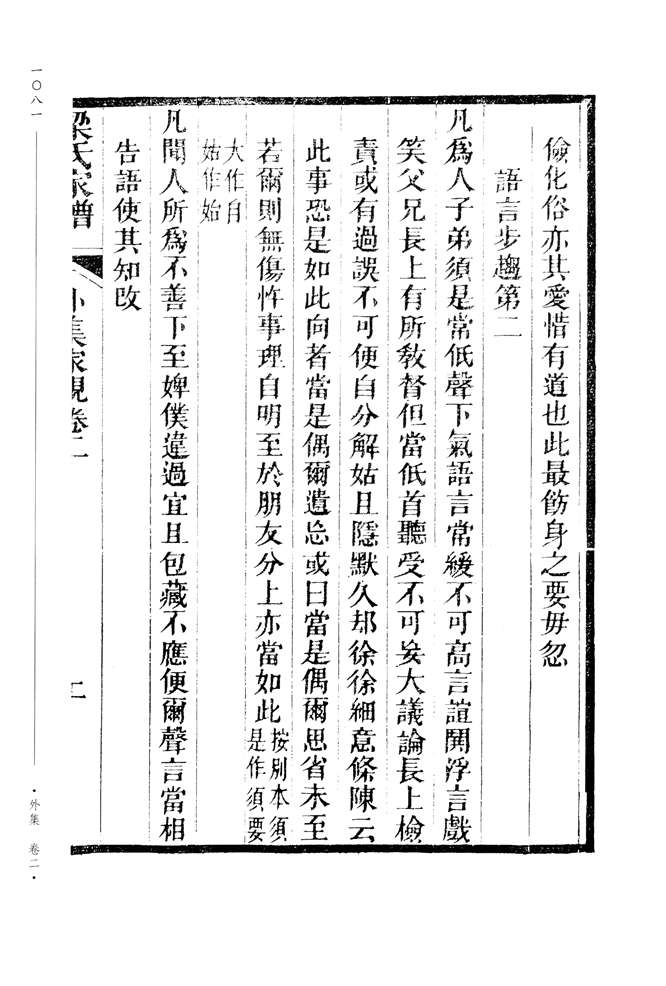 儉化俗亦其愛惜有道也此最飭身之要毋忽
語言步趨第二
凡爲人子弟須是常低聲下氣語言常緩不可高言諠鬨浮言戲
笑父兄長上有所敎督但當低首聽受不可妄大議論長上檢
責或有過誤不可便自分解姑且隱默久却徐徐細意條陳云
此事恐是如此向者當是偶爾遺忘或曰當是偶爾思省未至
若爾則無傷忤事理自明至於朋友分上亦當如此按別本須
是作須要
大作自
姑作始
凡聞人所爲不善下至婢僕違過宜且包藏不應便爾聲言當相
告語使其知改
梁氏家譜 外集家規卷二 二
一〇八一
·外集 卷二·